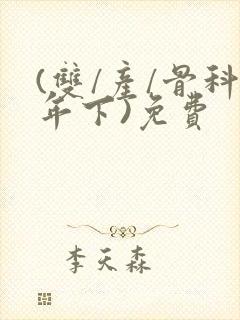 (雙/產/骨科
年下)免費
李天森